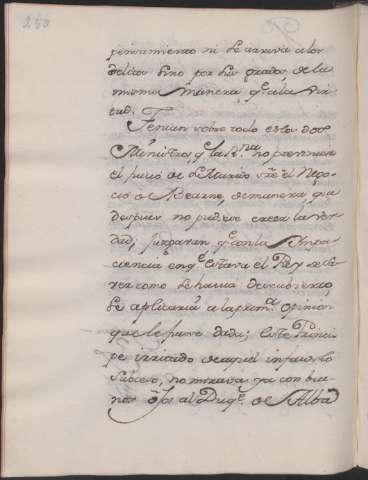 250
pensamiento ni se atravia a los
delitos sino por sus grados, de la
misma manera, q.e a la Vir
tud.
Temian sobre todo estos dos
Ministros, q.e la R.na no previniese
el juicio de su Marido sre el Nego
cio de Bearne, de manera, que
despues no pudiese creer la ver
dad; juzgavan q.e con la Impa
ciencia en q.e estava el Rey de sa
ver como se havia descubierto,
se aplicaria a la prim.a opinion
que le fuese dada; este Princi
pe irritado de aquel infausto
Suceso, no mirava ya con bue
nos ojos al Duq.e de Alba